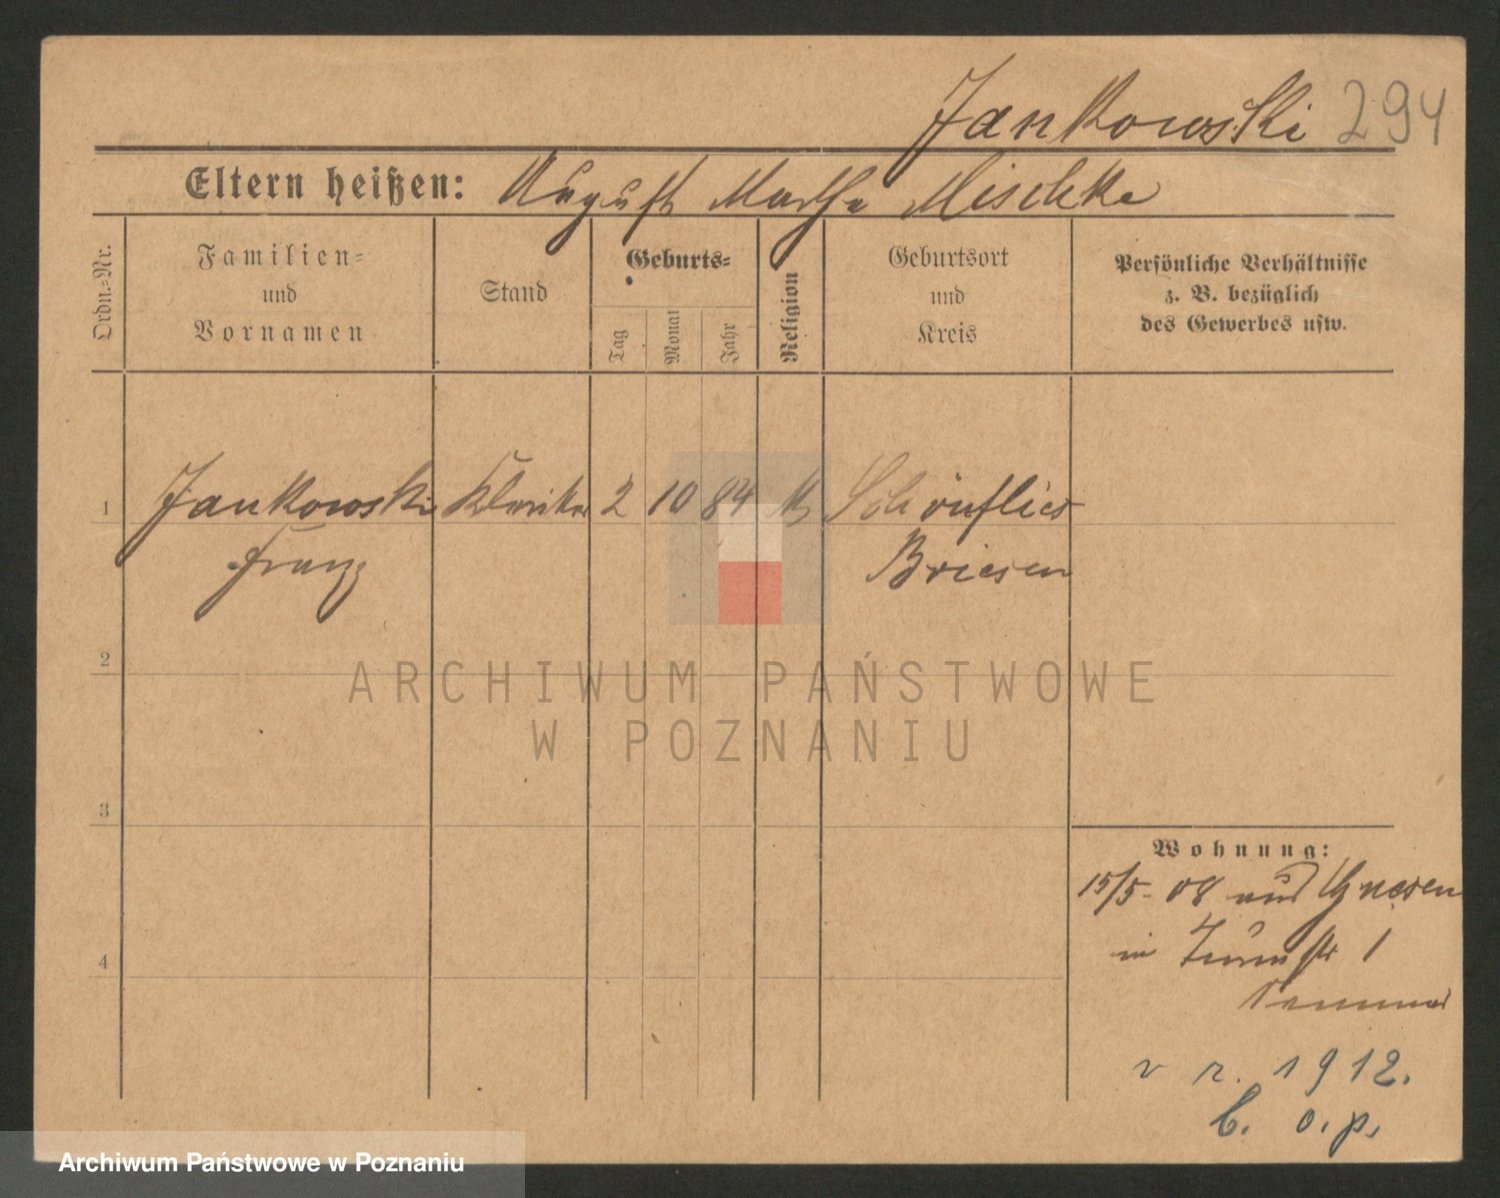 Jankowski 294
Eltern heißen: August Martha Mischke
Ordn.-Nr.
Familien- und Vornamen
Stand
Geburts-
Tag
Monat
Jahr
Religion
Geburtsort und Kreis
Persönliche Verhältnisse
z. B. bezüglich
des Gewerbes usw.
1 Jankowski Kleriker 2 10 84 Schönflies
Franz Briesen
2
3
4
Wohnung:
15/5-08 aus Gnesen
in Turmstr 1
v r. 1912.
b. o. p.
ARCHIWUM PAŃSTWOWE
W POZNANIU
Archiwum Państwowe w Poznaniu